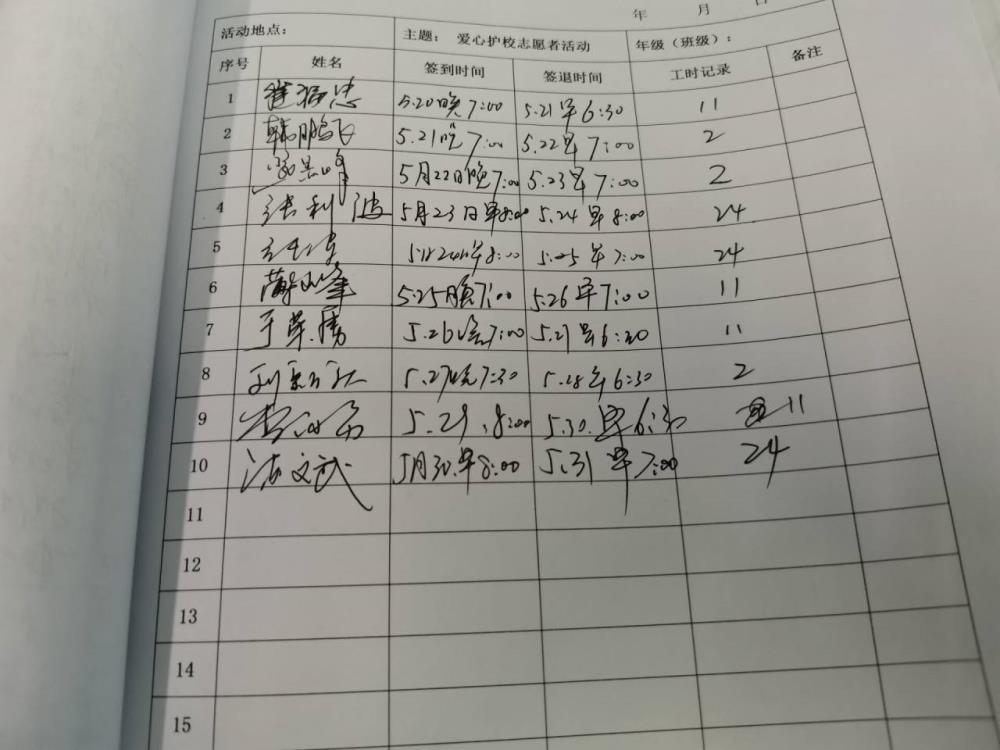 年 月 日
活动地点： 主题： 爱心护校志愿者活动 年级（班级）：
序号 姓名 签到时间 签退时间 工时记录 备注
1 5.20晚7:00 5.21早6:30 11
2 韩鹏飞 5.21晚7:00 5.22早7:00 2
3 5月22日晚7:00 5.23早7:00 2
4 张利波 5月23日早8:00 5.24早8:00 24
5 早8:00 早7:00 24
6 5.25晚7:00 5.26早7:00 11
7 5.26晚7:00 5.27早6:30 11
8 5.27晚7:30 5.28早6:30 2
9 5.29.8:00 5.30.早6:30 11
10 文武 5月30.早8:00 5.31早7:00 24
11
12
13
14
15